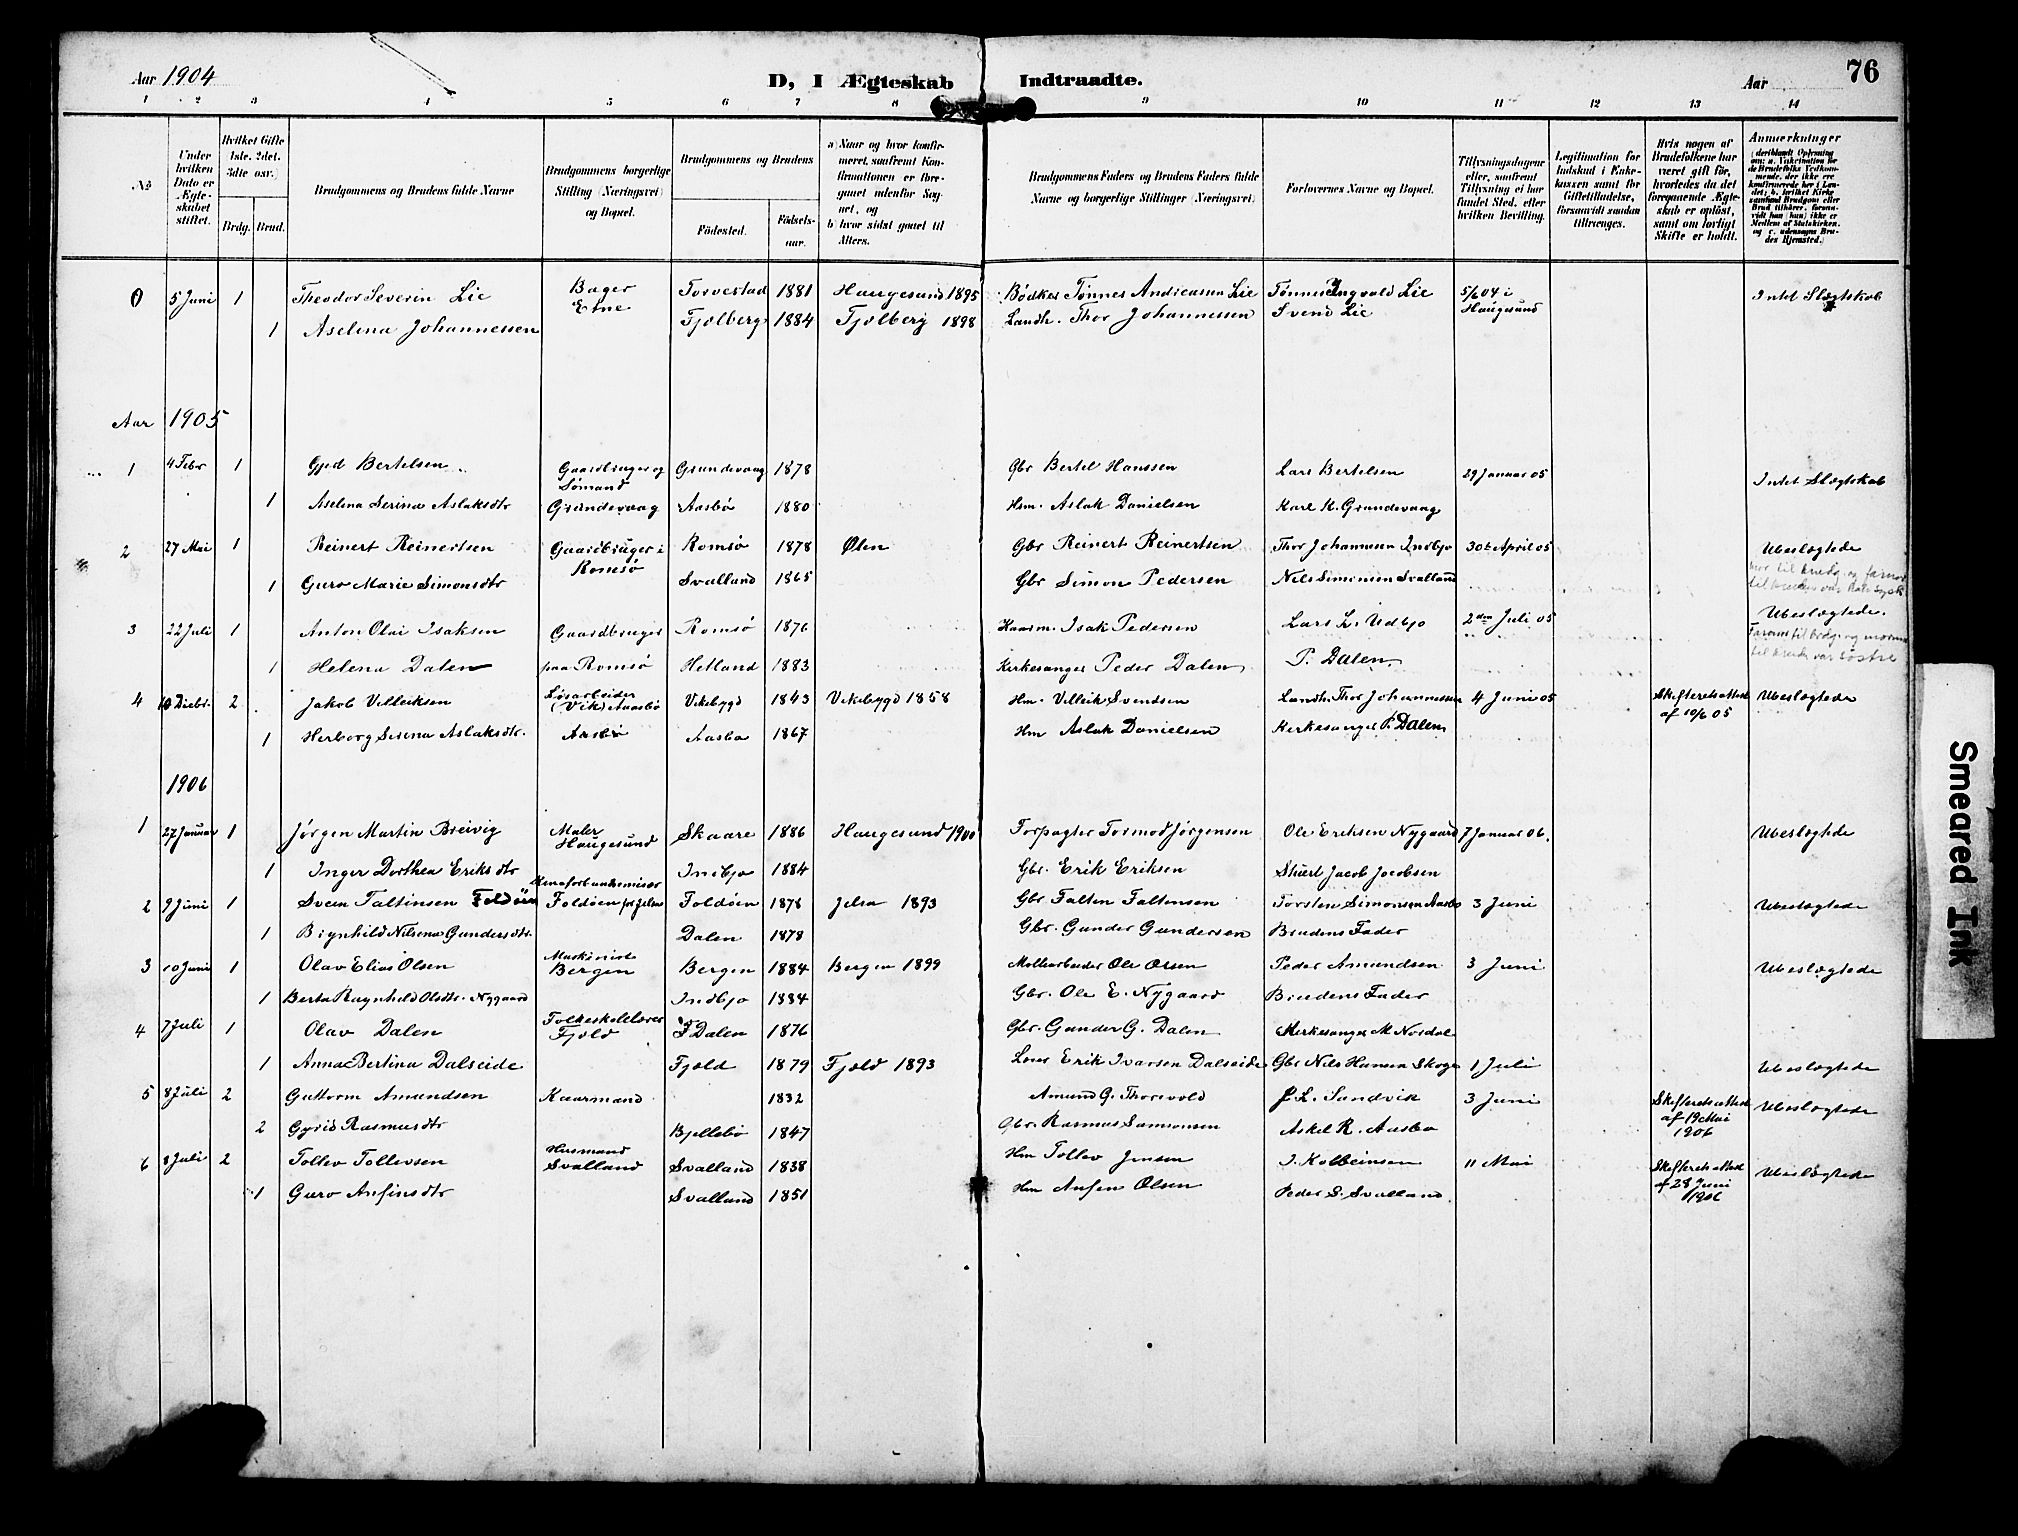 Aar 1904
D, I Ægteskab Indtraadte.
Aar
76
1 2 3 4 5 6 7 8 9 10 11 12 13 14
No
Under hvilken Dato er Ægteskabet stiftet.
Hvilket Gifte 1ste. 2det. 3die osv.)
Brdg. Brud.
Brudgommens og Brudens fulde Navne
Brudgommens borgerlige Stilling (Næringsvei) og Bopæl.
Brudgommens og Brudens
Födested.
Födselsaar.
a) Naar og hvor konfirmeret, saafremt Konfirmationen er foregaaet udenfor Sognet, og
b) hvor sidst gaaet til Alters.
Brudgommens Faders og Brudens Faders fulde Navne og borgerlige Stillinger (Næringsvei)
Forlovernes Navne og Bopæl.
Tillysningsdagene eller, saafremt Tillysning ei har fundet Sted, efter hvilken Bevilling.
Legitimation for Indskud i Enkekassen samt for Giftetilladelse, forsaavidt saadan tiltrænges.
Hvis nogen af Brudefolkene har været gift før, hvorledes da det foregaaende Ægteskab er opløst, samt om lovligt Skifte er holdt.
Anmærkninger
9 5 Juni 1 Theodor Severin Lie Bager Etne Torvestad 1881 Haugesund 1895 Bødker Tønnes Andreassen Lie Tønnes Ingvald Lie 5/6 04 i Haugesund Intet Slægtskab
1 Aselina Johannessen Fjelberg 1884 Fjelberg 1898 Landh. Thor Johannessen Svend Lie
Aar 1905
1 4 Febr 1 Gjed Bertelsen Gaardbruger og Sømand Grundevaag 1878 Gbr Bertel Hanssen Lars Bertelsen 29 Januar 05 Intet Slægtskab
1 Aselina Serina Aslaksdtr Grundevaag Aasbø 1880 Hsm. Aslak Danielsen Karl K. Grundevaag
2 27 Mai 1 Reinert Reinertsen Gaardbruger i Romsø Romsø 1878 Ølen Gbr Reinert Reinertsen Thor Johannesen Indbjo 30te April 05 Ubeslægtede
1 Guro Marie Simonsdtr Svalland 1865 Gbr Simon Pedersen Nils Simonsen Svalland
3 22 Juli 1 Anton Olai Isaksen Gaardbruger Romsø 1876 Kaarm. Isak Pedersen Lars L. Udbjo 2den Juli 05 Ubeslægtede.
1 Helena Dalen paa Romsø Hetland 1883 Kirkesanger Peder Dalen P. Dalen
4 10 Decbr. 2 Jakob Velleiksen Løsarbeider (Vik) Aasbø Vikebygd 1843 Vikebygd 1858 Hm. Velleik Svendsen Landh. Thor Johannessen 4 Juni 05 Skifteretsattest af 10/6 05 Ubeslægtede
1 Herborg Serina Aslaksdtr. Aasbø Aasbø 1867 Hm Aslak Danielsen Kirkesanger P. Dalen
1906
1 27 Januar 1 Jørgen Martin Breivig Maler Haugesund Skaare 1886 Haugesund 1900 Forpagter Tormod Jørgensen Ole Eriksen Nygaard 7 Januar 06. Ubeslægtede
1 Inger Dorthea Eriksdtr Indbjo 1884 Gbr. Erik Eriksen Stuert Jacob Jacobsen
2 9 Juni 1 Svein Faltinsen Foldöen Foldöen pr Jelsa Foldöen 1878 Jelsa 1893 Gbr Falten Faltensen Torsten Simonsen Aasbø 3 Juni Ubeslægtede
1 Brynhild Nilsena Gundersdtr. Dalen 1878 Gbr. Gunder Gundersen Brudens Fader
3 10 Juni 1 Olav Elias Olsen Maskinist Bergen Bergen 1884 Bergen 1899 Ole Olsen Peder Amundsen 3 Juni Ubeslægtede
1 Berta Ragnhild Olsdtr. Nygaard Indbjo 1884 Gbr. Ole E. Nygaard Brudens Fader
4 7 Juli 1 Olav Dalen Folkeskolelærer Fjeld Dalen 1876 Gbr. Gunder G. Dalen Kirkesanger M. Nordal
1 Anna Bertina Dalseide Fjeld 1879 Fjeld 1893 Erik Ivarsen Dalseide Gbr Nils Hansen Skoge 1 Juli Ubeslægtede
5 8 Juli 2 Guttorm Amundsen Kaarmand 1832 Amund G. Thorsvold L. Sandvik 3 Juni Skifteretsattest af 19 Mai 1906 Ubeslægtede
2 Gyrid Rasmusdtr Bjellebø 1847 Gbr. Rasmus Samsonsen Askel R. Aasbø
6 8 Juli 2 Tollev Tollevsen Husmand Svalland Svalland 1838 Hm Tollev Jensen J. Kolbeinsen 11 Mai Skifteretsattest af 28 Juni 1906 Ubeslægtede
1 Guro Anfinsdtr Svalland 1851 Hm Anfin Olsen Peder S. Svalland
Smeared Ink